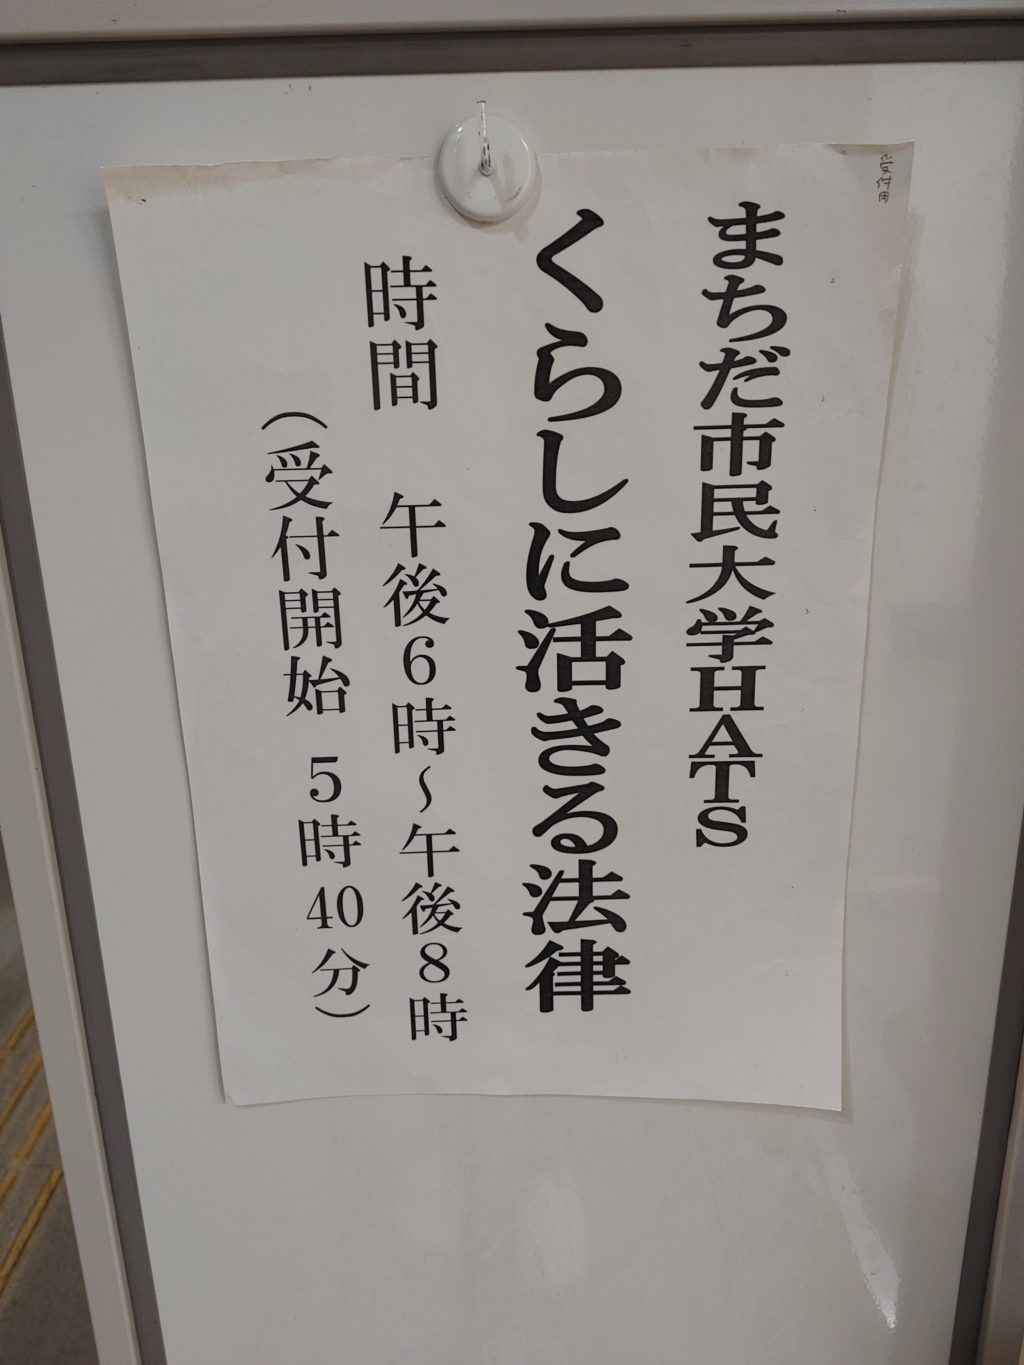 受付用
まちだ市民大学HATS
くらしに活きる法律
時間　午後6時～午後8時
（受付開始　5時40分）